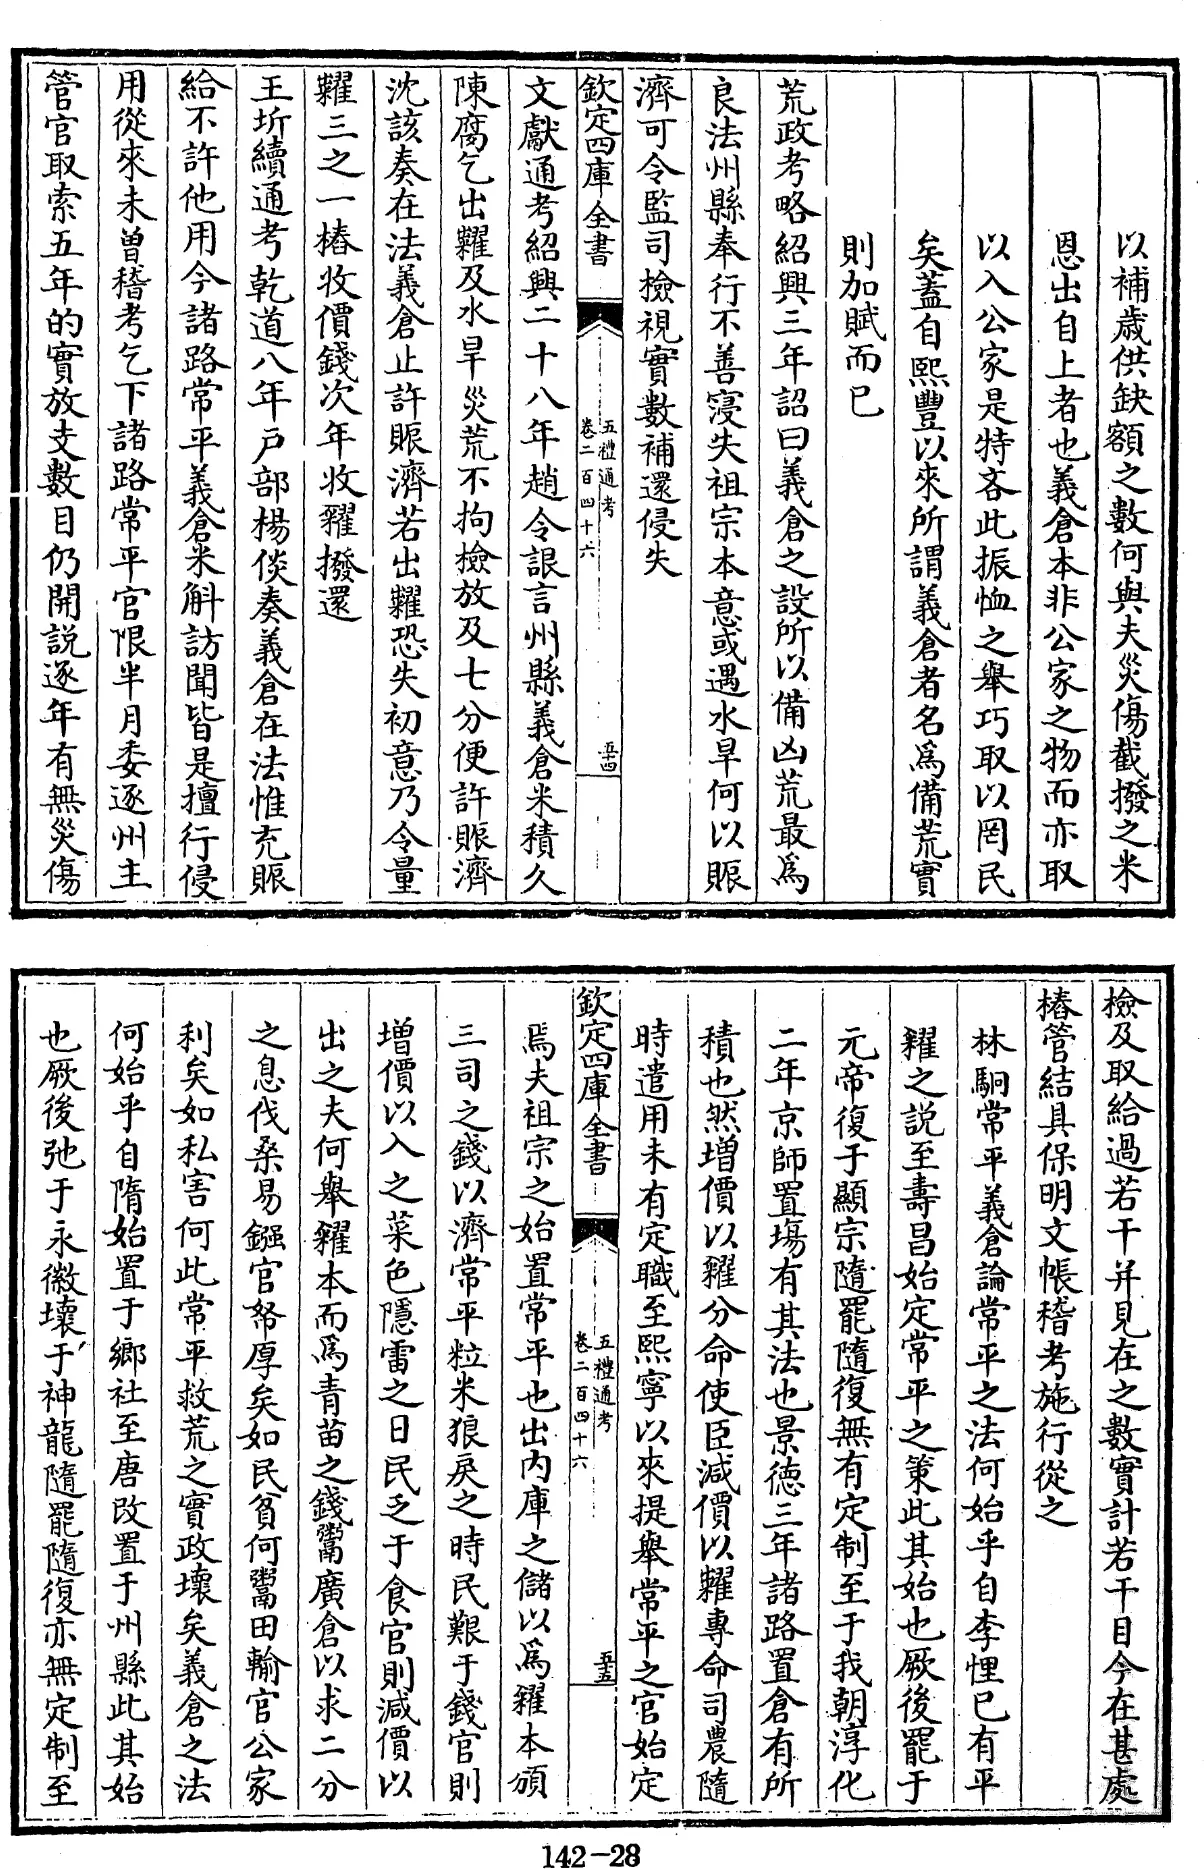 以補歳供缺額之數何與夫災傷截撥之米
恩出自上者也義倉本非公家之物而亦取
以入公家是特吝此振恤之舉巧取以罔民
矣蓋自熙豐以來所謂義倉者名爲備荒實
則加賦而已
荒政考略紹興三年詔曰義倉之設所以備凶荒最爲
良法州縣奉行不善寖失祖宗本意或遇水旱何以賑
濟可令監司檢視實數補還侵失
欽定四庫全書
五禮通考
卷二百四十六
五十四
文獻通考紹興二十八年趙令詪言州縣義倉米積久
陳腐乞出糶及水旱災荒不拘檢放及七分便許賑濟
沈該奏在法義倉止許賑濟若出糶恐失初意乃令量
糶三之一樁收價錢次年收糴撥還
王圻續通考乾道八年戸部楊倓奏義倉在法惟充賑
給不許他用今諸路常平義倉米斛訪聞皆是擅行侵
用從來未曾稽考乞下諸路常平官限半月委逐州主
管官取索五年的實放支數目仍開説逐年有無災傷
檢及取給過若干并見在之數實計若干目今在甚處
樁管結具保明文帳稽考施行從之
林駧常平義倉論常平之法何始乎自李悝已有平
糴之説至壽昌始定常平之策此其始也厥後罷于
元帝復于顯宗隨罷隨復無有定制至于我朝淳化
二年京師置場有其法也景徳三年諸路置倉有所
積也然增價以糴分命使臣減價以糶專命司農隨
時遣用未有定職至熙寧以來提舉常平之官始定
欽定四庫全書
五禮通考
卷二百四十六
五十五
焉夫祖宗之始置常平也出内庫之儲以爲糴本頒
三司之錢以濟常平粒米狼戾之時民艱于錢官則
增價以入之菜色隱雷之日民乏于食官則減價以
出之夫何舉糴本而爲青苗之錢鬻廣倉以求二分
之息伐桑易鏹官帑厚矣如民貧何鬻田輸官公家
利矣如私害何此常平救荒之實政壞矣義倉之法
何始乎自隋始置于鄉社至唐改置于州縣此其始
也厥後弛于永徽壞于神龍隨罷隨復亦無定制至
142-28